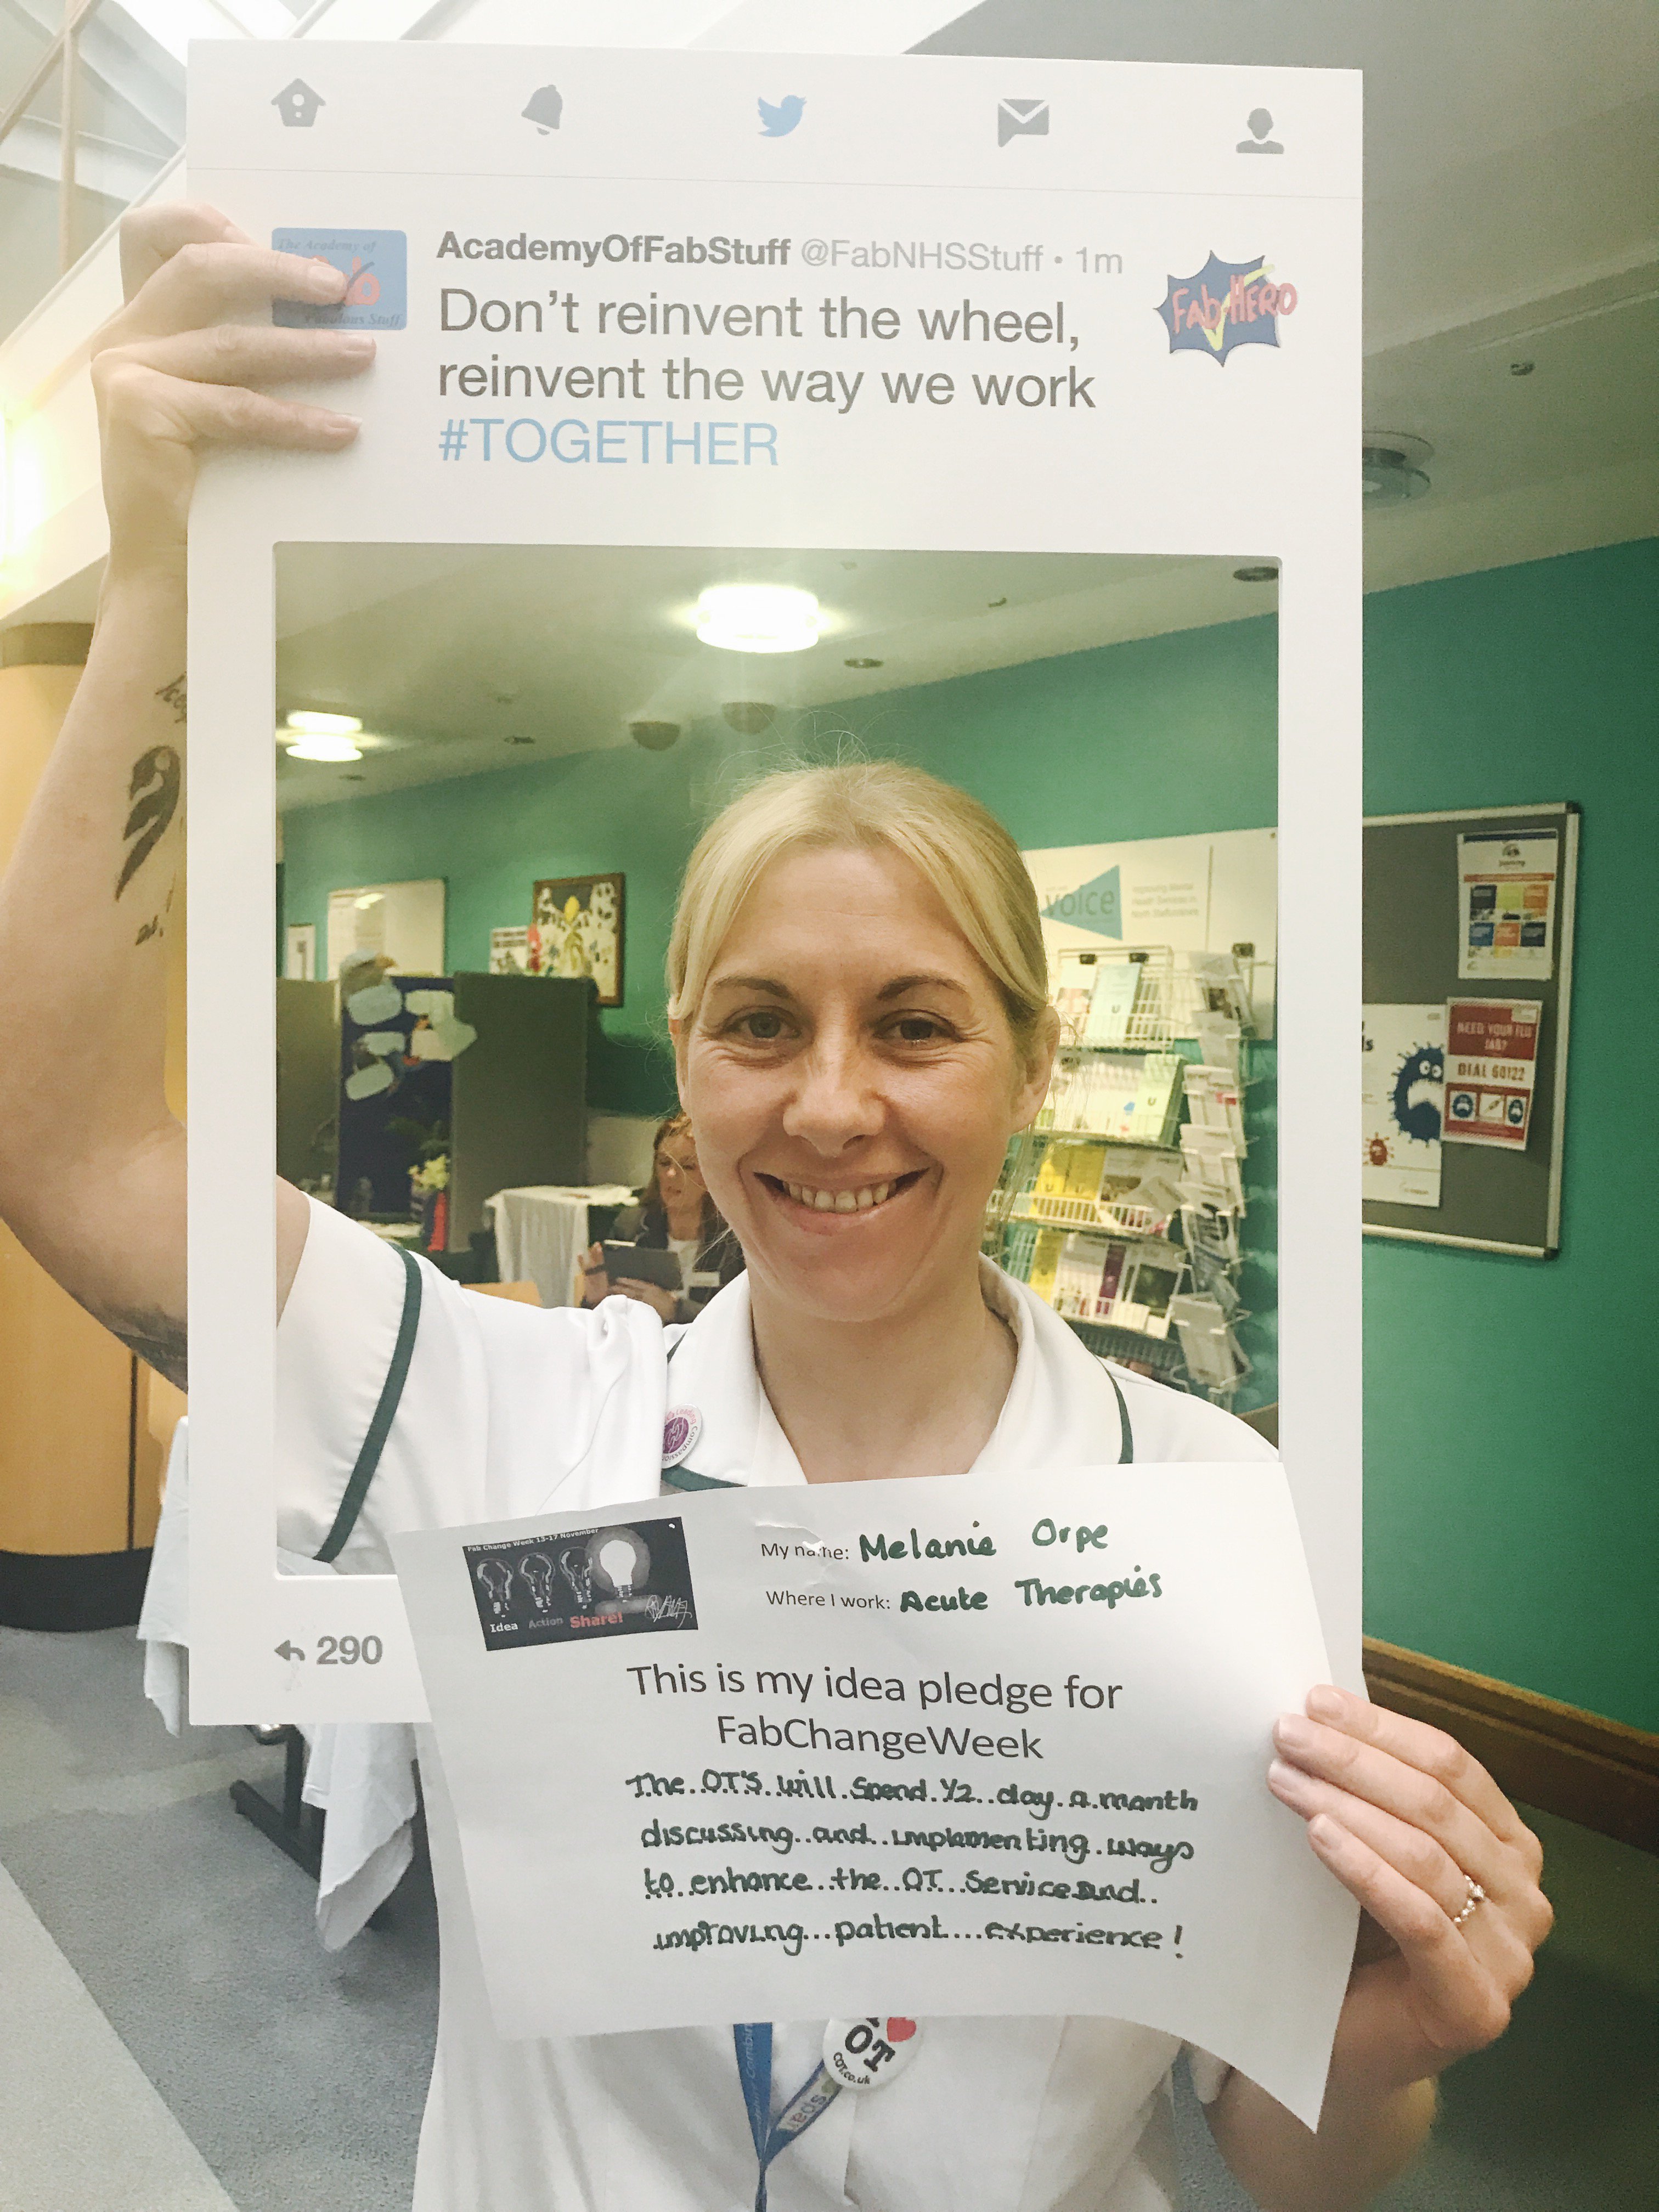 The Academy of
Fabulous Stuff
AcademyOfFabStuff @FabNHSStuff • 1m
Don't reinvent the wheel,
reinvent the way we work
#TOGETHER
Fab HERO
voice
Improving Mental
Health Services in
North Staffordshire
NEED YOUR FLU
JAB?
DIAL 60122
Fab Change Week 13-17 November
Idea Action Share!
My name: Melanie Orpe
Where I work: Acute Therapies
290
This is my idea pledge for
FabChangeWeek
The OT'S will Spend 1/2 day a month
discussing and implementing ways
to enhance the OT Service and
improving patient experience!
OT
COT.co.uk